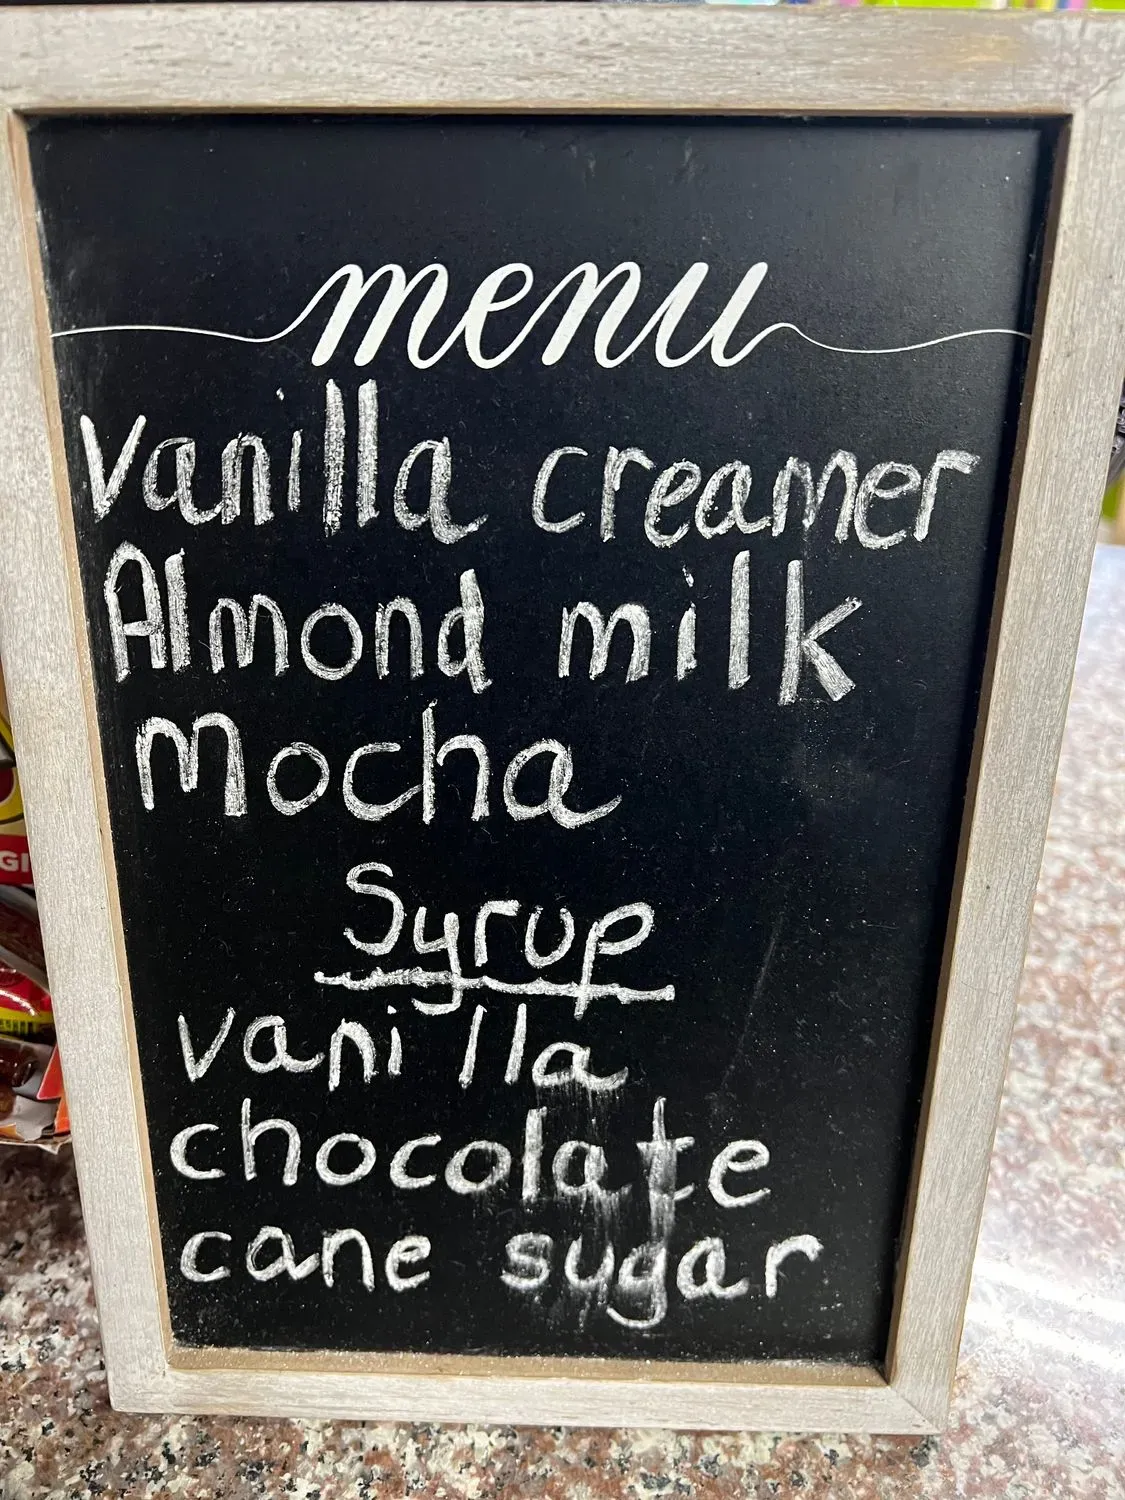 menu
Vanilla creamer
Almond milk
Mocha
Syrup
vanilla
chocolate
cane sugar